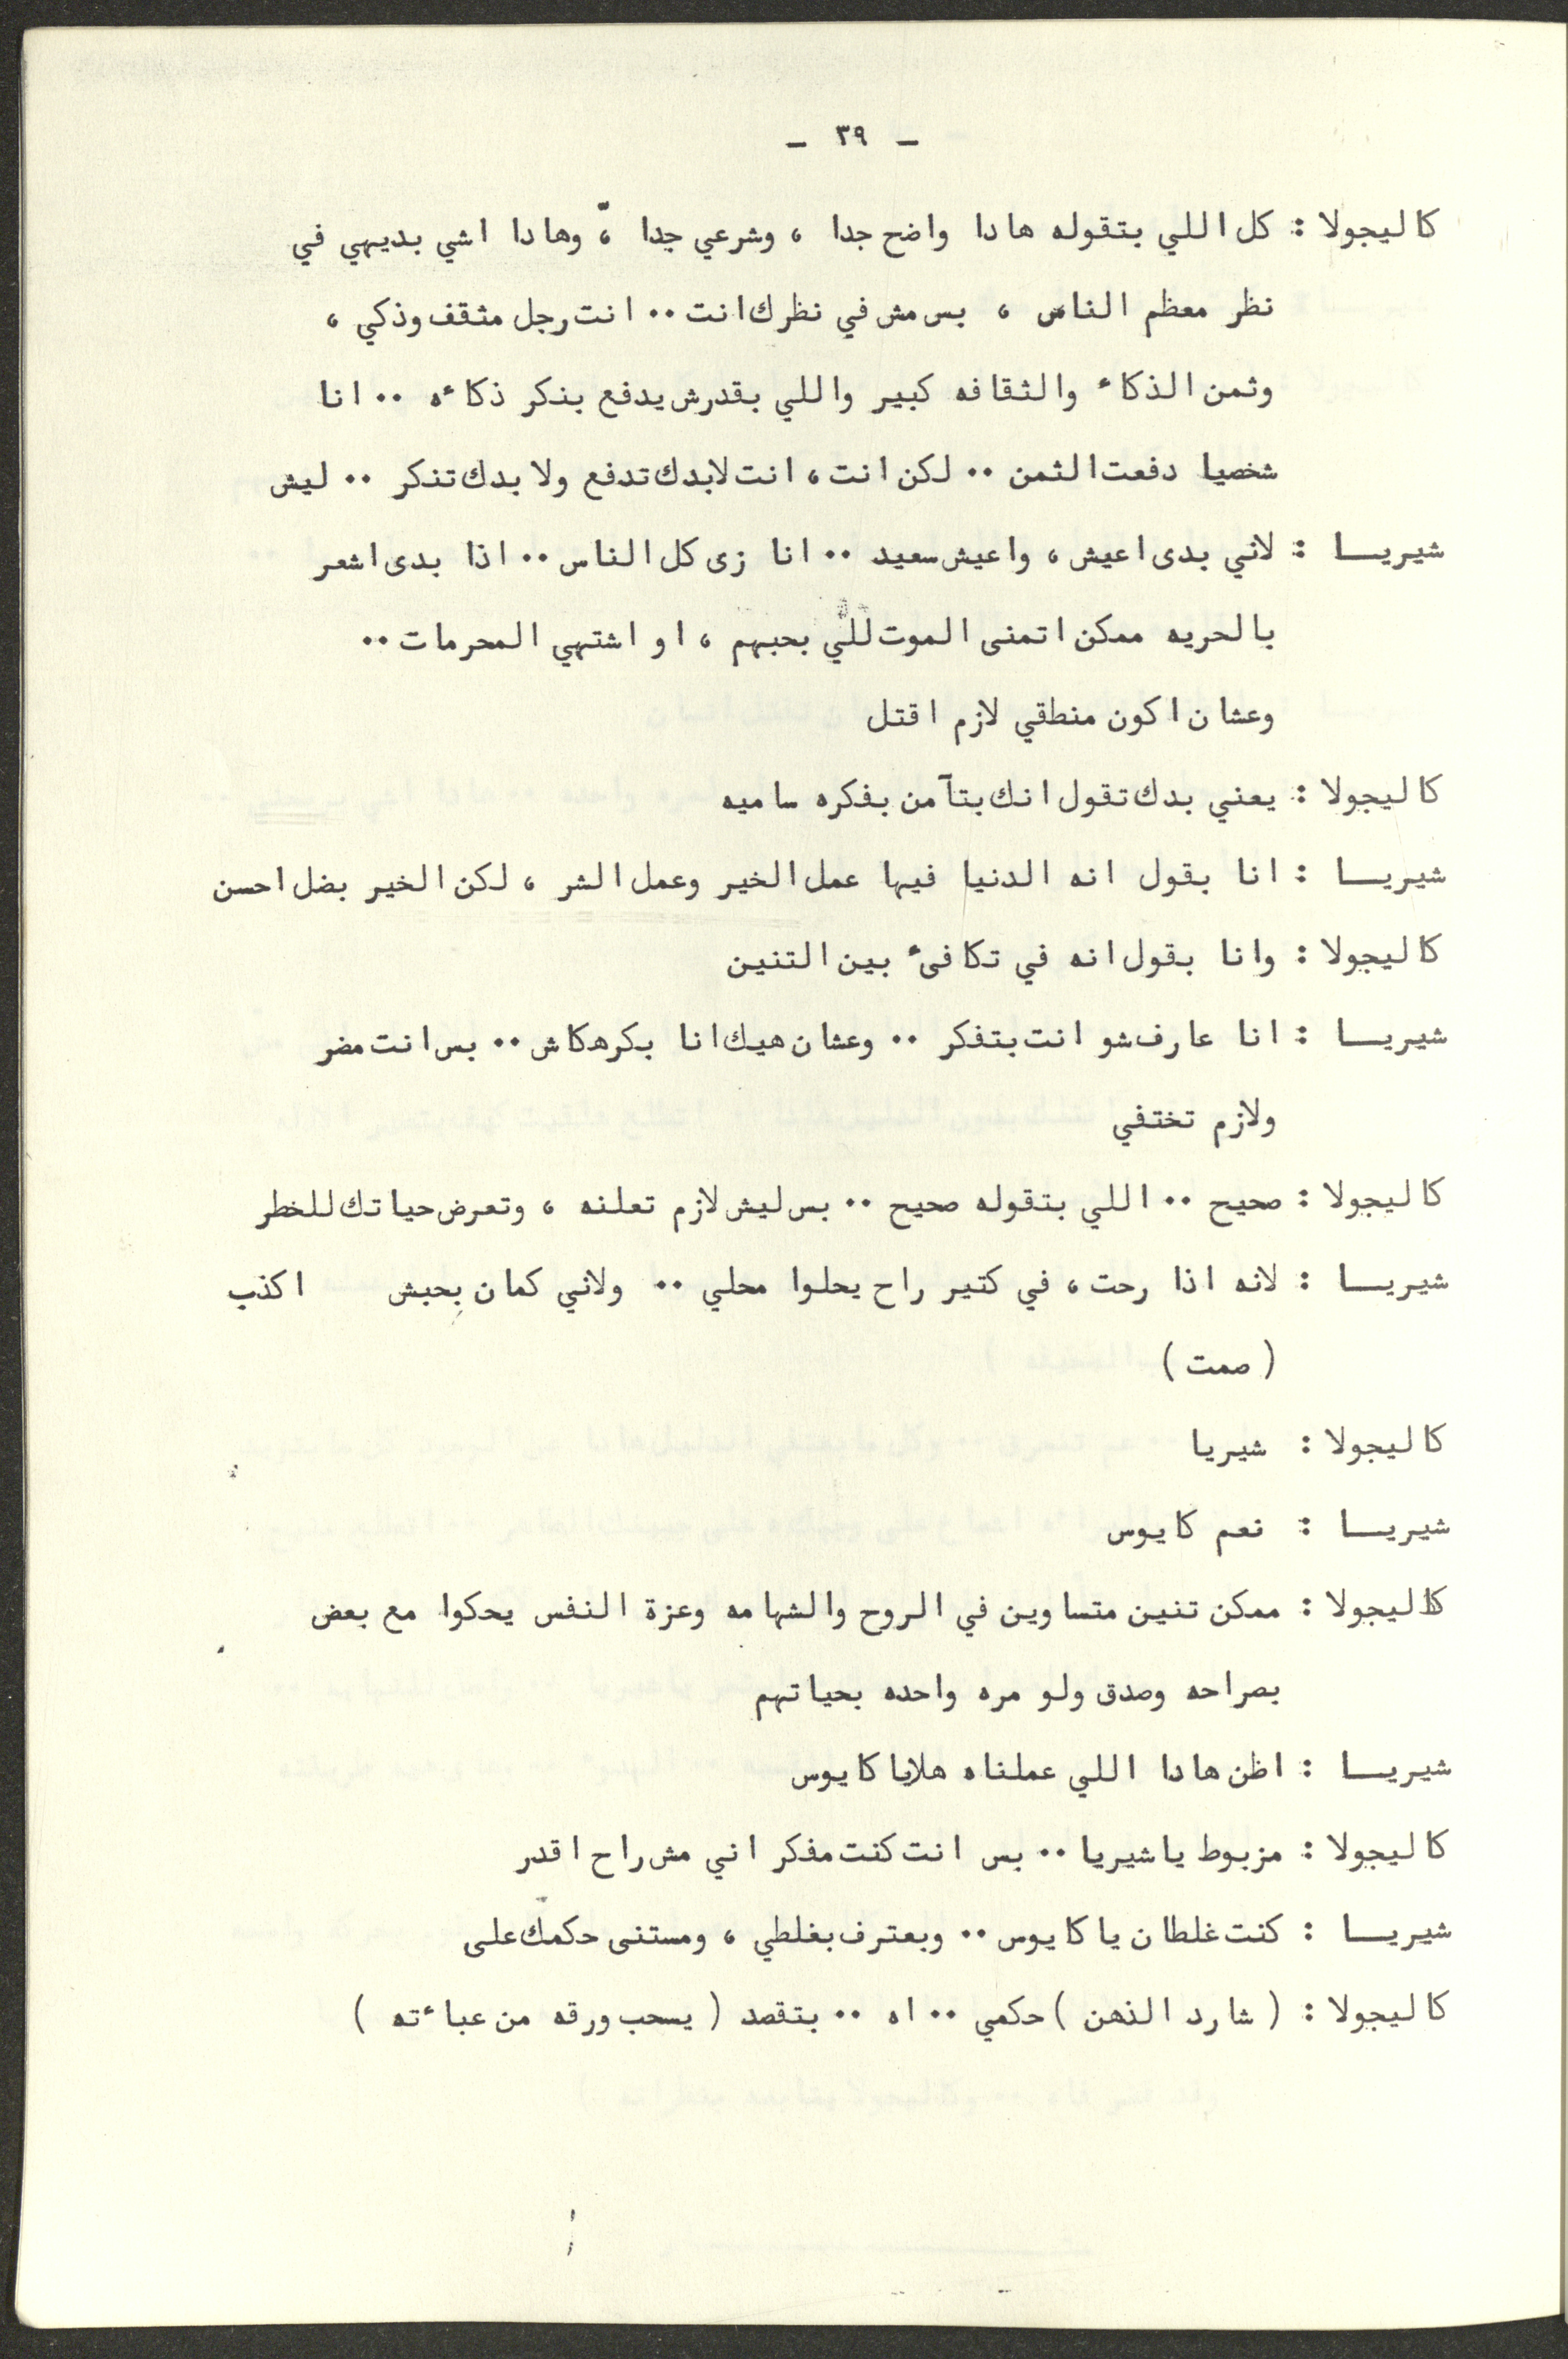 - ٣٩ -
كاليجولا : كل اللي بتقوله هادا واضح جدا ، وشرعي جدا ، وهادا اشي بديهي في
نظر معظم الناس ، بس مش في نظرك انت ٠٠ انت رجل مثقف وذكي ،
وثمن الذكاء والثقافه كبير واللي بقدرش يدفع بنكر ذكاءه ٠٠ انا
شخصيا دفعت الثمن ٠٠ لكن انت ، انت لابدك تدفع ولا بدك تنكر ٠٠ ليش
شيريـــا : لاني بدى اعيش ، واعيش سعيد ٠٠ انا زى كل الناس ٠٠ اذا بدى اشعر
بالحريه ممكن اتمنى الموت للّي بحبهم ، او اشتهي المحرمات ٠٠
وعشان اكون منطقي لازم اقتل
كاليجولا : يعني بدك تقول انك بتآمن بفكره ساميه
شيريـــا : انا بقول انه الدنيا فيها عمل الخير وعمل الشر ، لكن الخير بضل احسن
كاليجولا : وانا بقول انه في تكافىء بين التنين
شيريـــا : انا عارف شو انت بتفكر ٠٠ وعشان هيك انا بكرهكاش ٠٠ بس انت مضر
ولازم تختفي
كاليجولا : صحيح ٠٠ اللي بتقوله صحيح ٠٠ بس ليش لازم تعلنه ، وتعرض حياتك للخطر
شيريـــا : لانه اذا رحت ، في كتير راح يحلوا محلي ٠٠ ولاني كمان بحبش اكذب
( صمت )
كاليجولا : شيريا
شيريـــا : نعم كايوس
كاليجولا : ممكن تنين متساوين في الروح والشهامه وعزة النفس يحكوا مع بعض
بصراحه وصدق ولو مره واحده بحياتهم
شيريـــا : اظن هادا اللي عملناه هلايا كايوس
كاليجولا : مزبوط ياشيريا ٠٠ بس انت كنت مفكر اني مش راح اقدر
شيريـــا : كنت غلطان ياكايوس ٠٠ وبعترف بغلطي ، ومستنى حكمك على
كاليجولا : ( شارد الذهن ) حكمي ٠٠ اه ٠٠ بتقصد ( يسحب ورقه من عباءته )